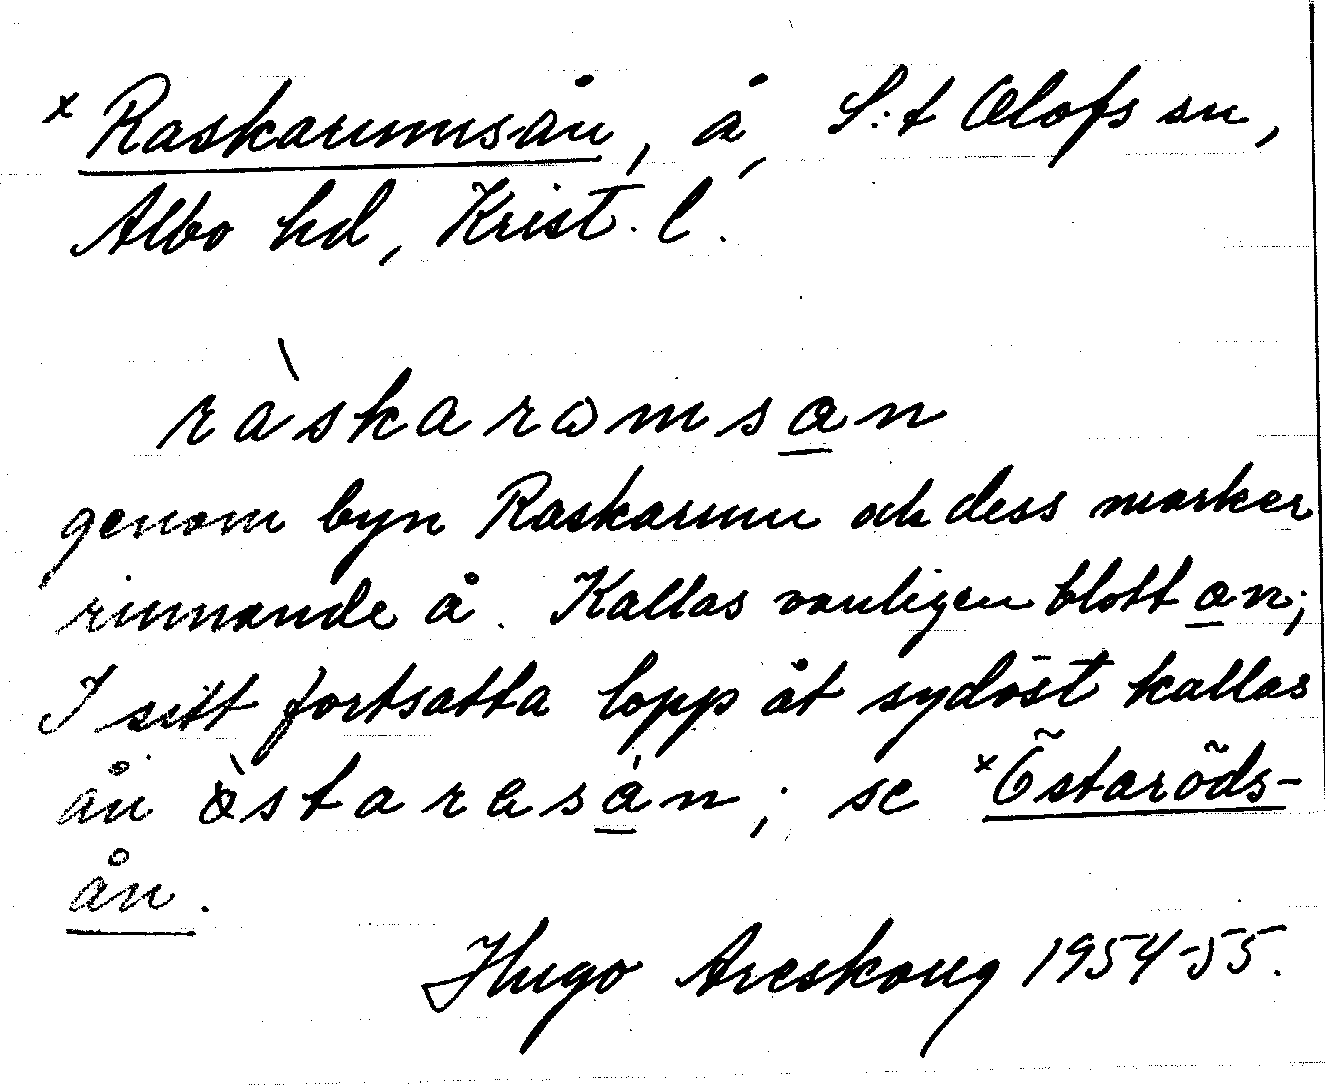 x Raskarumsån, å, S:t Olofs sn,
Albo hd, Krist. l.
ràskarωmsa̲n
genom byn Raskarum och dess marker
rinnande å. Kallas vanligen blott a̲n;
I sitt fortsatta lopp åt sydöst kallas
ån ö̀starɐsà̲n; se x Östaröds-
ån.
Hugo Areskoug 1954-55.